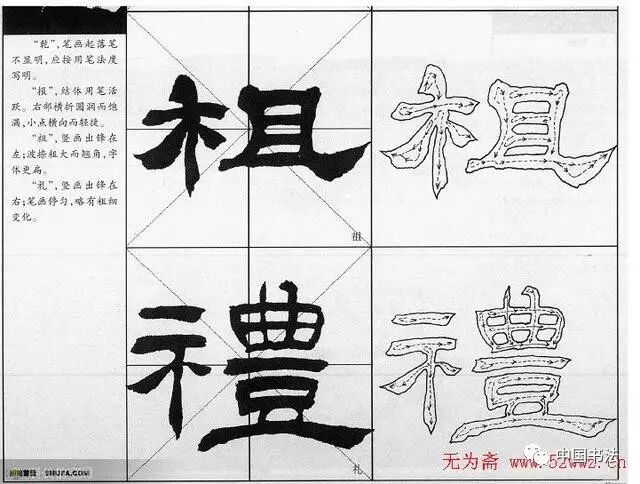 “乾”，笔画起落笔
不显明，应按用笔法度
写明。
“报”，结体用笔活
跃。右部横折圆润而饱
满，小点横向而轻捷。
“祖”，竖画出锋在
左；波捺粗大而翘角，字
体更扁。
“礼”，竖画出锋在
右；笔画停匀，略有粗细
变化。
祖
祖
禮
礼
SHUFA.COM
中国书法
无为斋 www.52ww2.cn